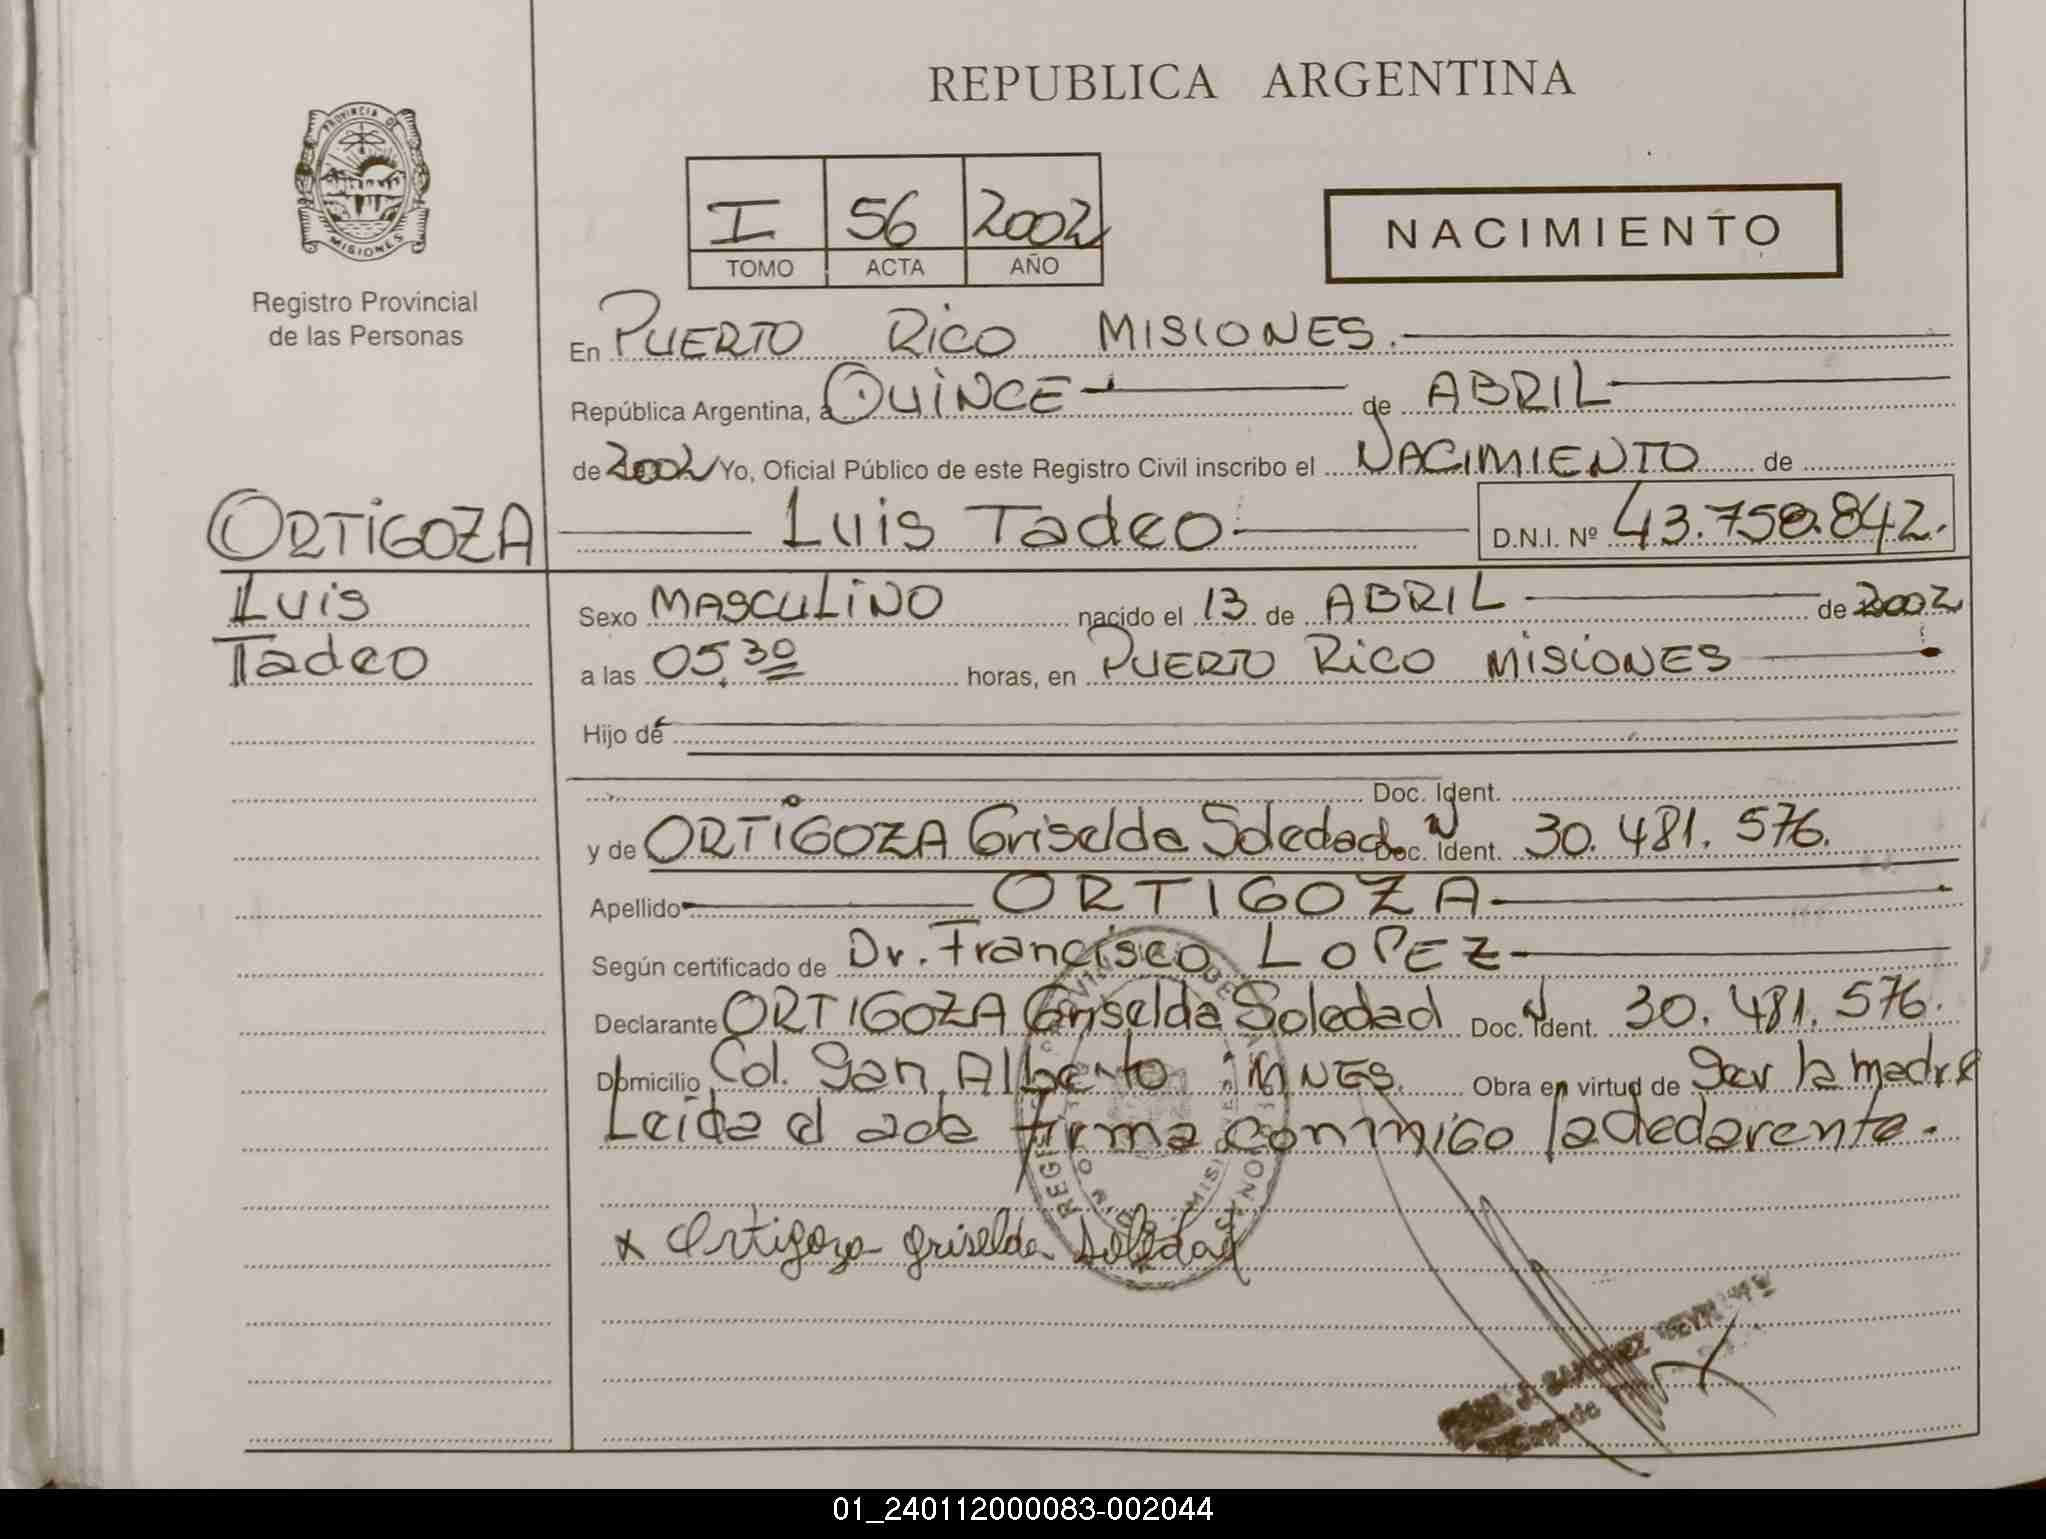 REPUBLICA ARGENTINA
PROVINCIA DE
MISIONES
Registro Provincial
de las Personas
I 56 2002
TOMO ACTA AÑO
NACIMIENTO
En PUERTO RICO MISIONES.
República Argentina, a QUINCE de ABRIL
de 2002 Yo, Oficial Público de este Registro Civil inscribo el NACIMIENTO de
ORTIGOZA Luis Tadeo D.N.I. Nº 43.750.842.
Luis
Tadeo
Sexo MASCULINO nacido el 13 de ABRIL de 2002
a las 05.30 horas, en PUERTO RICO MISIONES
Hijo de
Doc. Ident.
y de ORTIGOZA Griselda Soledad Doc. Ident. 30.481.576.
Apellido ORTIGOZA
Según certificado de Dr. Francisco LOPEZ
Declarante ORTIGOZA Griselda Soledad Doc. Ident. 30.481.576.
Domicilio Col. San Alberto MNES. Obra en virtud de Ser la madre
Leida el acta firma conmigo la declarante.
x Ortigoza Griselda Soledad
J. SANCHEZ
01_240112000083-002044